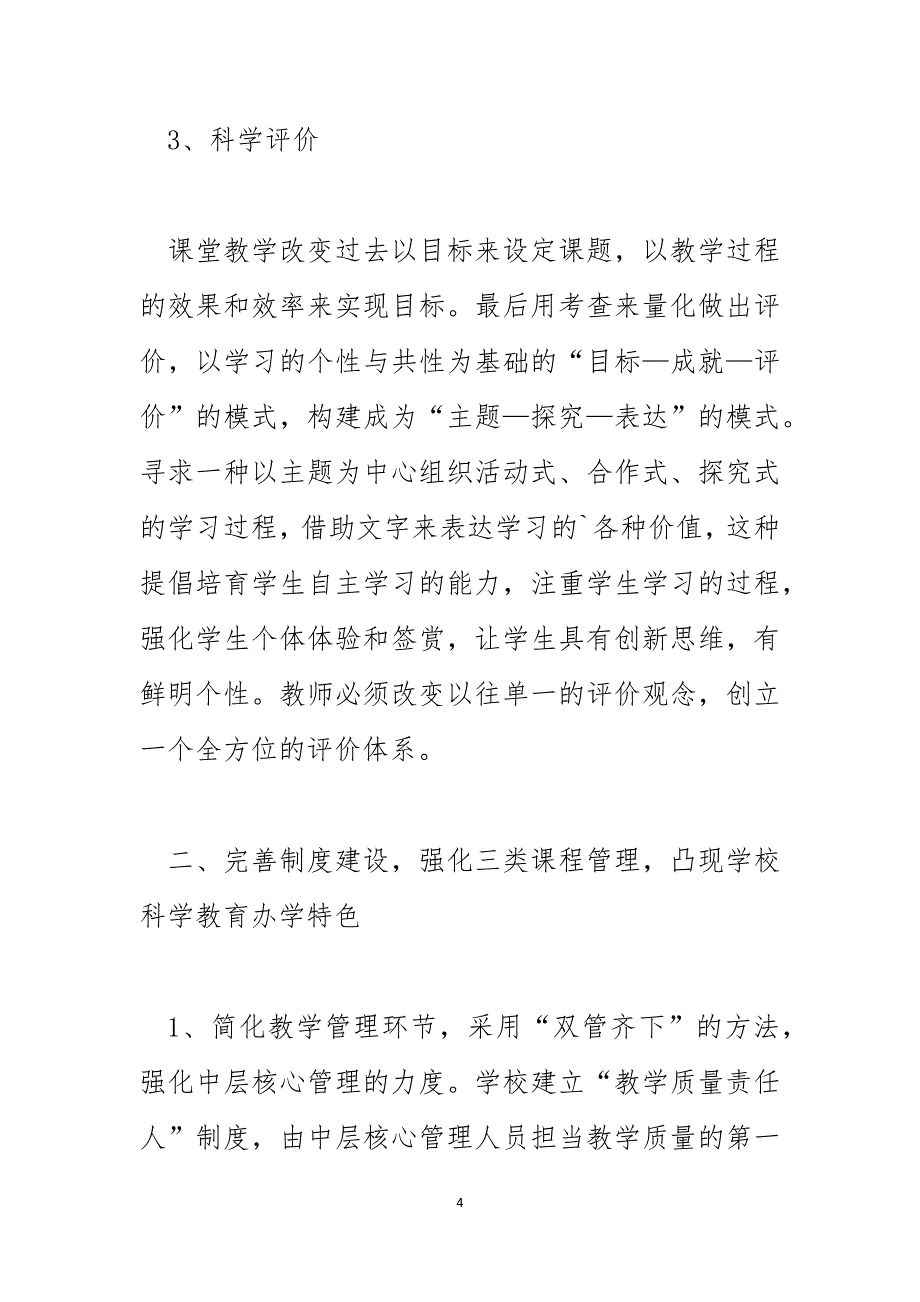 3、科学评价
课堂教学改变过去以目标来设定课题，以教学过程
的效果和效率来实现目标。最后用考查来量化做出评
价，以学习的个性与共性为基础的“目标—成就—评
价”的模式，构建成为“主题—探究—表达”的模式。
寻求一种以主题为中心组织活动式、合作式、探究式
的学习过程，借助文字来表达学习的`各种价值，这种
提倡培育学生自主学习的能力，注重学生学习的过程，
强化学生个体体验和签赏，让学生具有创新思维，有
鲜明个性。教师必须改变以往单一的评价观念，创立
一个全方位的评价体系。
二、完善制度建设，强化三类课程管理，凸现学校
科学教育办学特色
1、简化教学管理环节，采用“双管齐下”的方法，
强化中层核心管理的力度。学校建立“教学质量责任
人”制度，由中层核心管理人员担当教学质量的第一
4